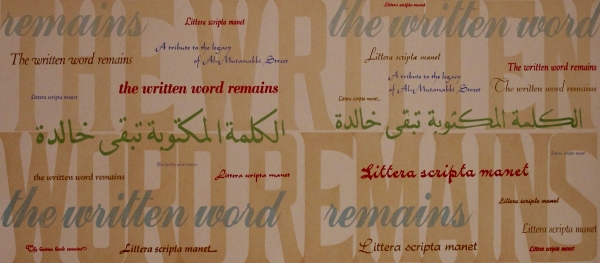 THE WRITTEN
Littera scripta manet
remains
Littera scripta manet
the written word
The written word remains
A tribute to the legacy
of Al-Mutanabbi Street
Littera scripta manet
The written word remains
A tribute to the legacy
of Al-Mutanabbi Street
the written word remains
The written word remains
Littera scripta manet
الكلمة المكتوبة تبقى خالدة
الكلمة المكتوبة تبقى خالدة
WORD REMAINS
the written word remains
Littera scripta manet
Littera scripta manet
Littera scripta manet
the written word
remains
Littera scripta manet
Littera scripta manet
Littera scripta manet
Littera scripta manet